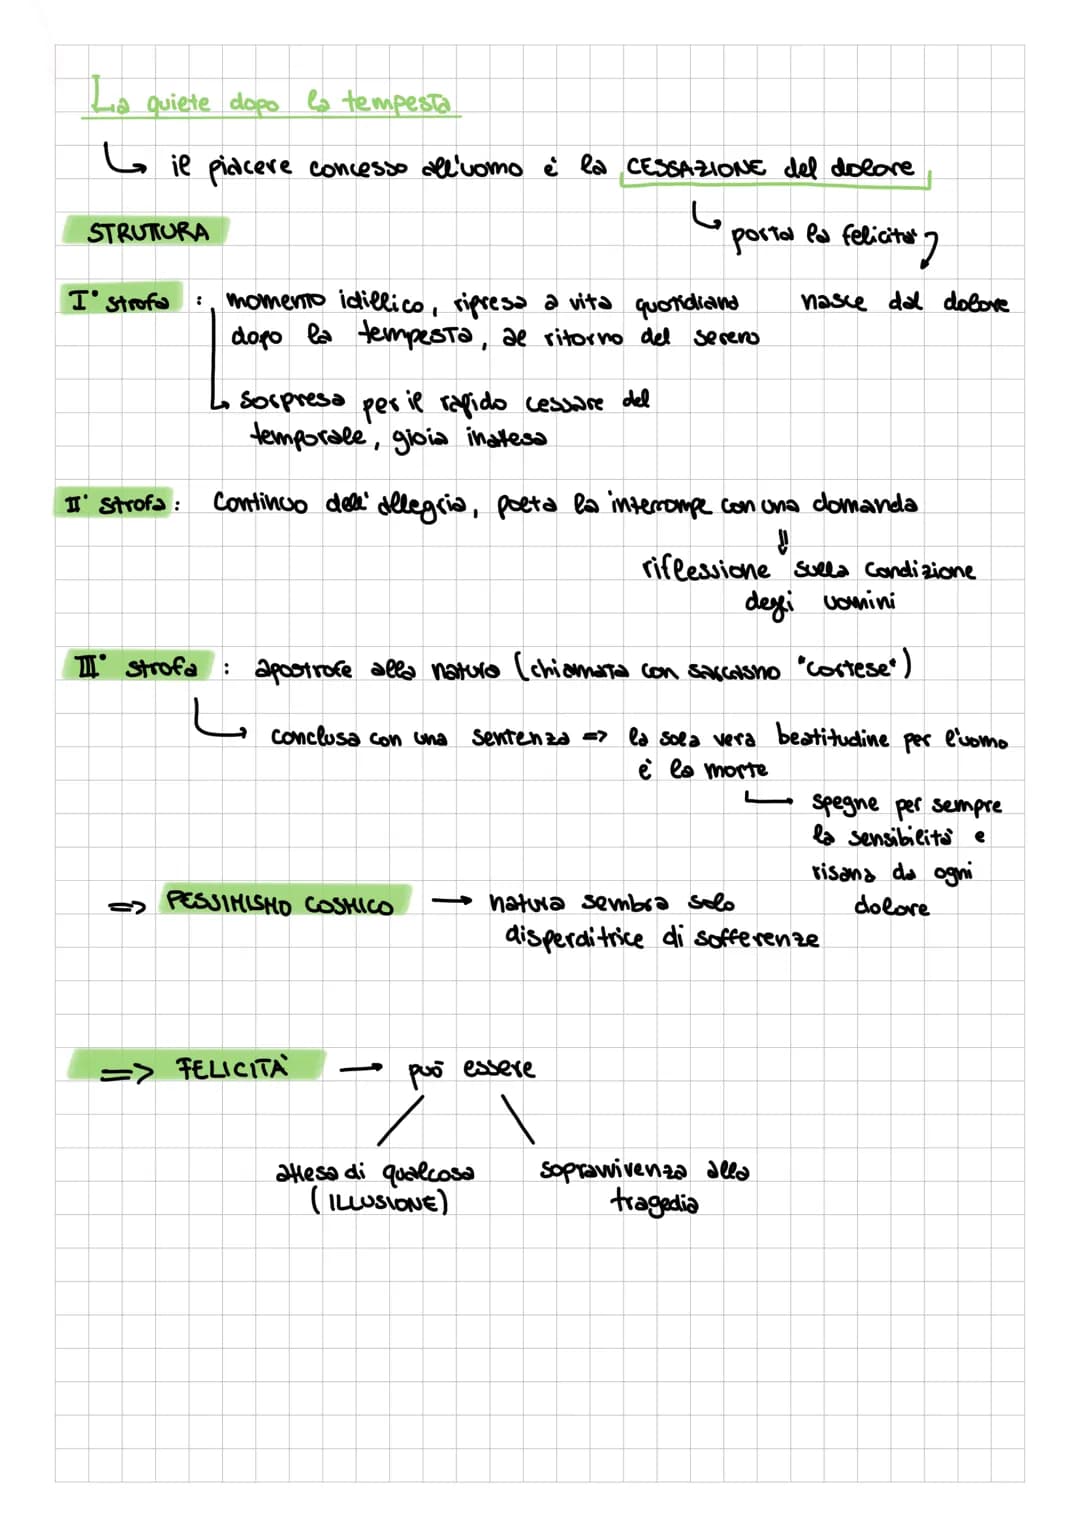 La quiete dopo la tempesta
il piacere concesso all'uomo è la CESSAZIONE del dolore
STRUTTURA
porta la felicità
I° strofa : momento idillico, ripresa a vita quotidiana
nasce dal dolore
dopo la tempesta, al ritorno del sereno
sorpresa per il rapido cessare del
temporale, gioia inattesa
II° strofa : Continuo dell'allegria, poeta la interrompe con una domanda
riflessione sulla condizione
degli uomini
III° strofa : apostrofe alla natura (chiamata con sarcasmo "cortese")
conclusa con una sentenza => la sola vera beatitudine per l'uomo
è la morte
spegne per sempre
la sensibilità e
risana da ogni
dolore
=> PESSIMISMO COSMICO → natura sembra solo
disperditrice di sofferenze
=> FELICITÀ → può essere
attesa di qualcosa
(ILLUSIONE)
sopravvivenza alla
tragedia